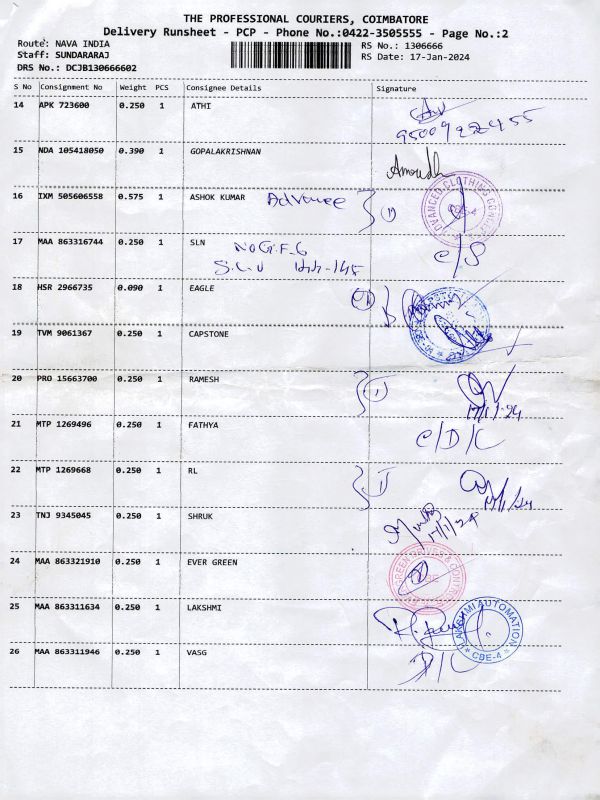 THE PROFESSIONAL COURIERS, COIMBATORE
Delivery Runsheet - PCP - Phone No.:0422-3505555 - Page No.:2
Route: NAVA INDIA
RS No.: 1306666
Staff: SUNDARARAJ
RS Date: 17-Jan-2024
DRS No.: DCJB130666602
S No Consignment No Weight PCS Consignee Details Signature
14 APK 723600 0.250 1 ATHI
15 NDA 105418050 0.390 1 GOPALAKRISHNAN
16 IXM 505606558 0.575 1 ASHOK KUMAR Advance
17 MAA 863316744 0.250 1 SLN C/S
18 HSR 2966735 0.090 1 EAGLE
19 TVM 9061367 0.250 1 CAPSTONE
20 PRO 15663700 0.250 1 RAMESH
17/1/24
21 MTP 1269496 0.250 1 FATHYA C/D/L
22 MTP 1269668 0.250 1 RL
17/1/24
23 TNJ 9345045 0.250 1 SHRUK
17/1/24
24 MAA 863321910 0.250 1 EVER GREEN
25 MAA 863311634 0.250 1 LAKSHMI
LAKSHMI AUTOMATION
CBE-4
26 MAA 863311946 0.250 1 VASG D/L